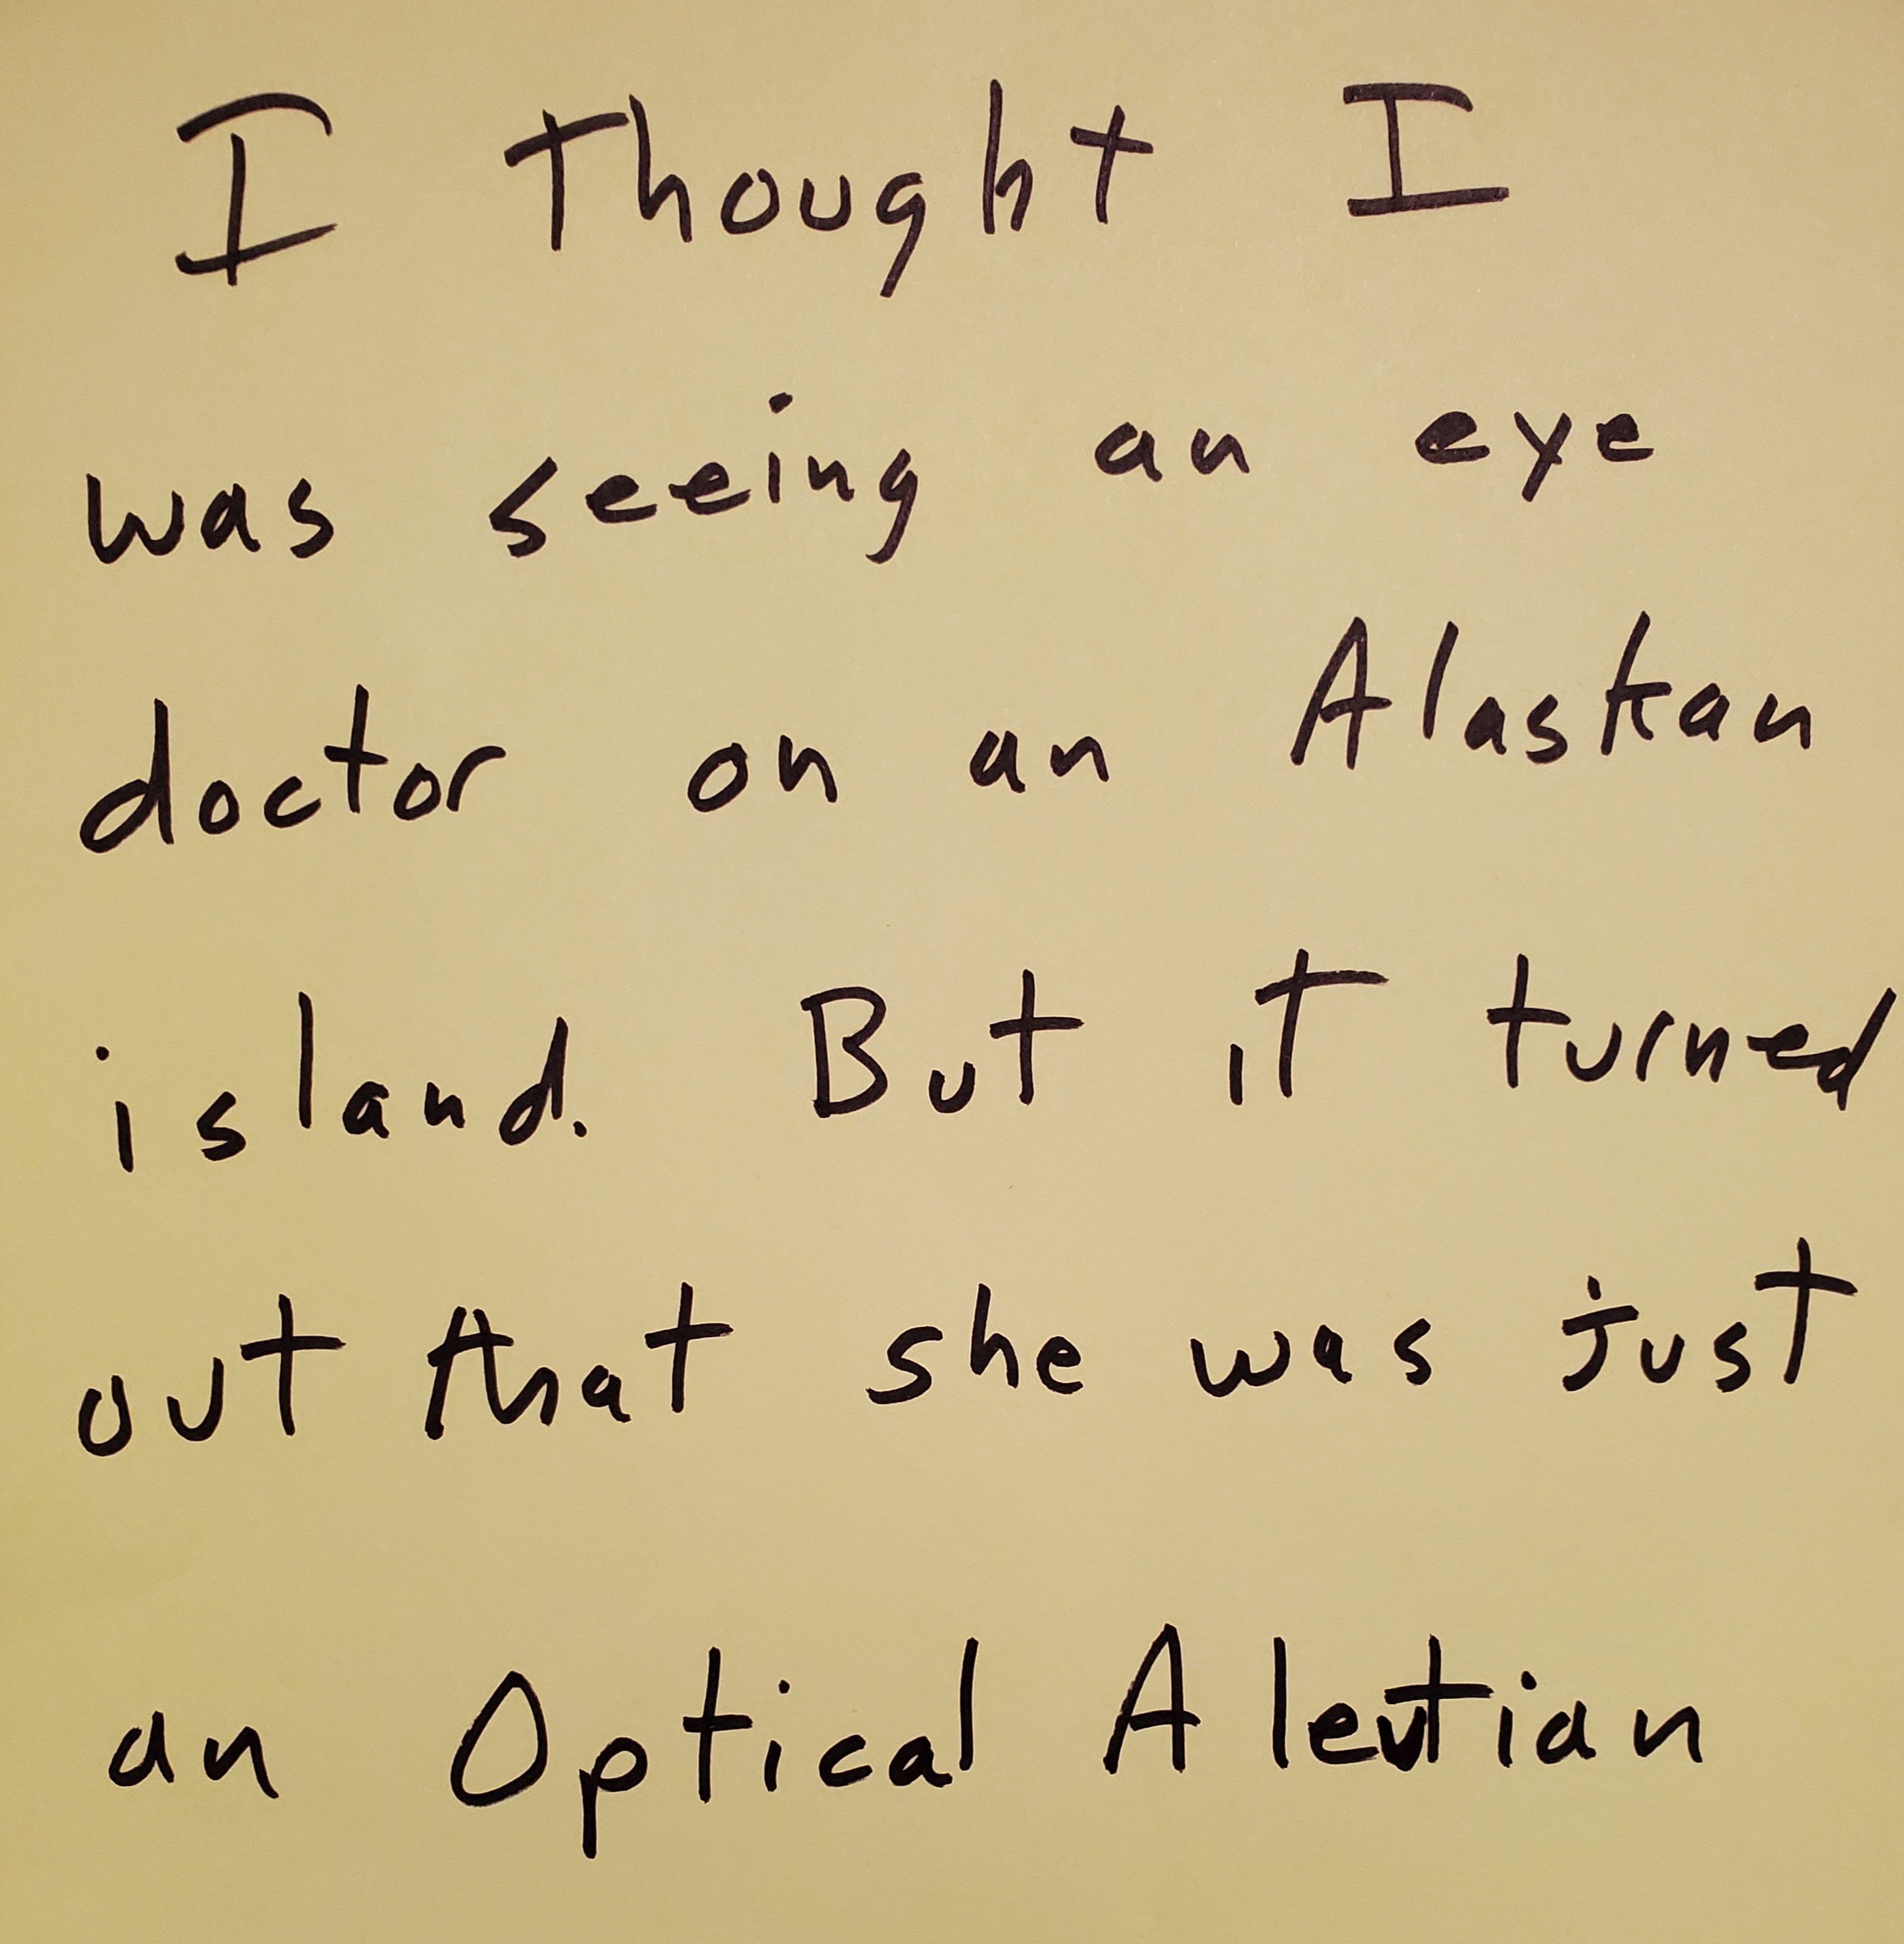 I Thought I
was seeing an eye
doctor on an Alaskan
island. But it turned
out that she was just
an Optical Aleutian